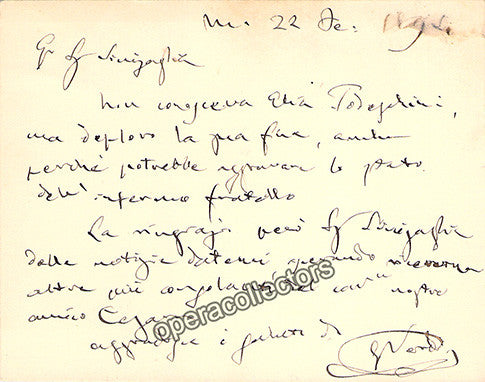 Mi. 22 De. 1892
Sig Sinigaglia
Non conosceva Elia Todeschini,
ma deploro la sua fine, anche
perchè potrebbe aggravare lo stato
dell'infermo fratello
La ringrazio però Sig Sinigaglia
delle notizie datemi sperando riceverne
altre più consolanti del caro nostro
amico Cesar
aggradisca i saluti di
GVerdi
operacollectors